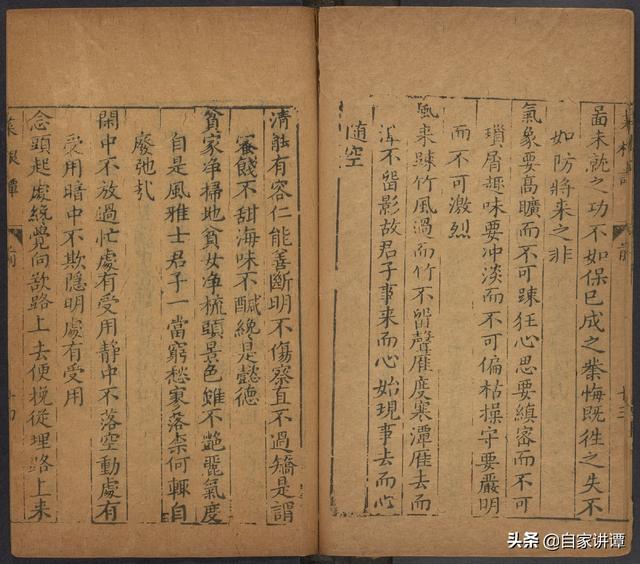 菜根譚 前 十三
啚未就之功不如保已成之業悔既徃之失不
如防將来之非
氣象要髙曠而不可踈狂心思要縝宻而不可
瑣屑趣味要冲淡而不可偏枯操守要嚴明
而不可激烈
風来踈竹風過而竹不畱聲雁度寒潭雁去而
潭不畱影故君子事来而心始現事去而心
随空
清能有容仁能善斷明不傷察直不過矯是謂
蜜餞不甜海味不醎纔是懿德
貧家净掃地貧女净梳頭景色雖不艷麗氣度
自是風雅士君子一當窮愁寥落柰何輙自
廢弛㢤
閑中不放過忙處有受用静中不落空動處有
受用暗中不欺隱明處有受用
念頭起處纔覺向欲路上去便挽從理路上来
菜根譚 前 十四
头条 @自家讲谭